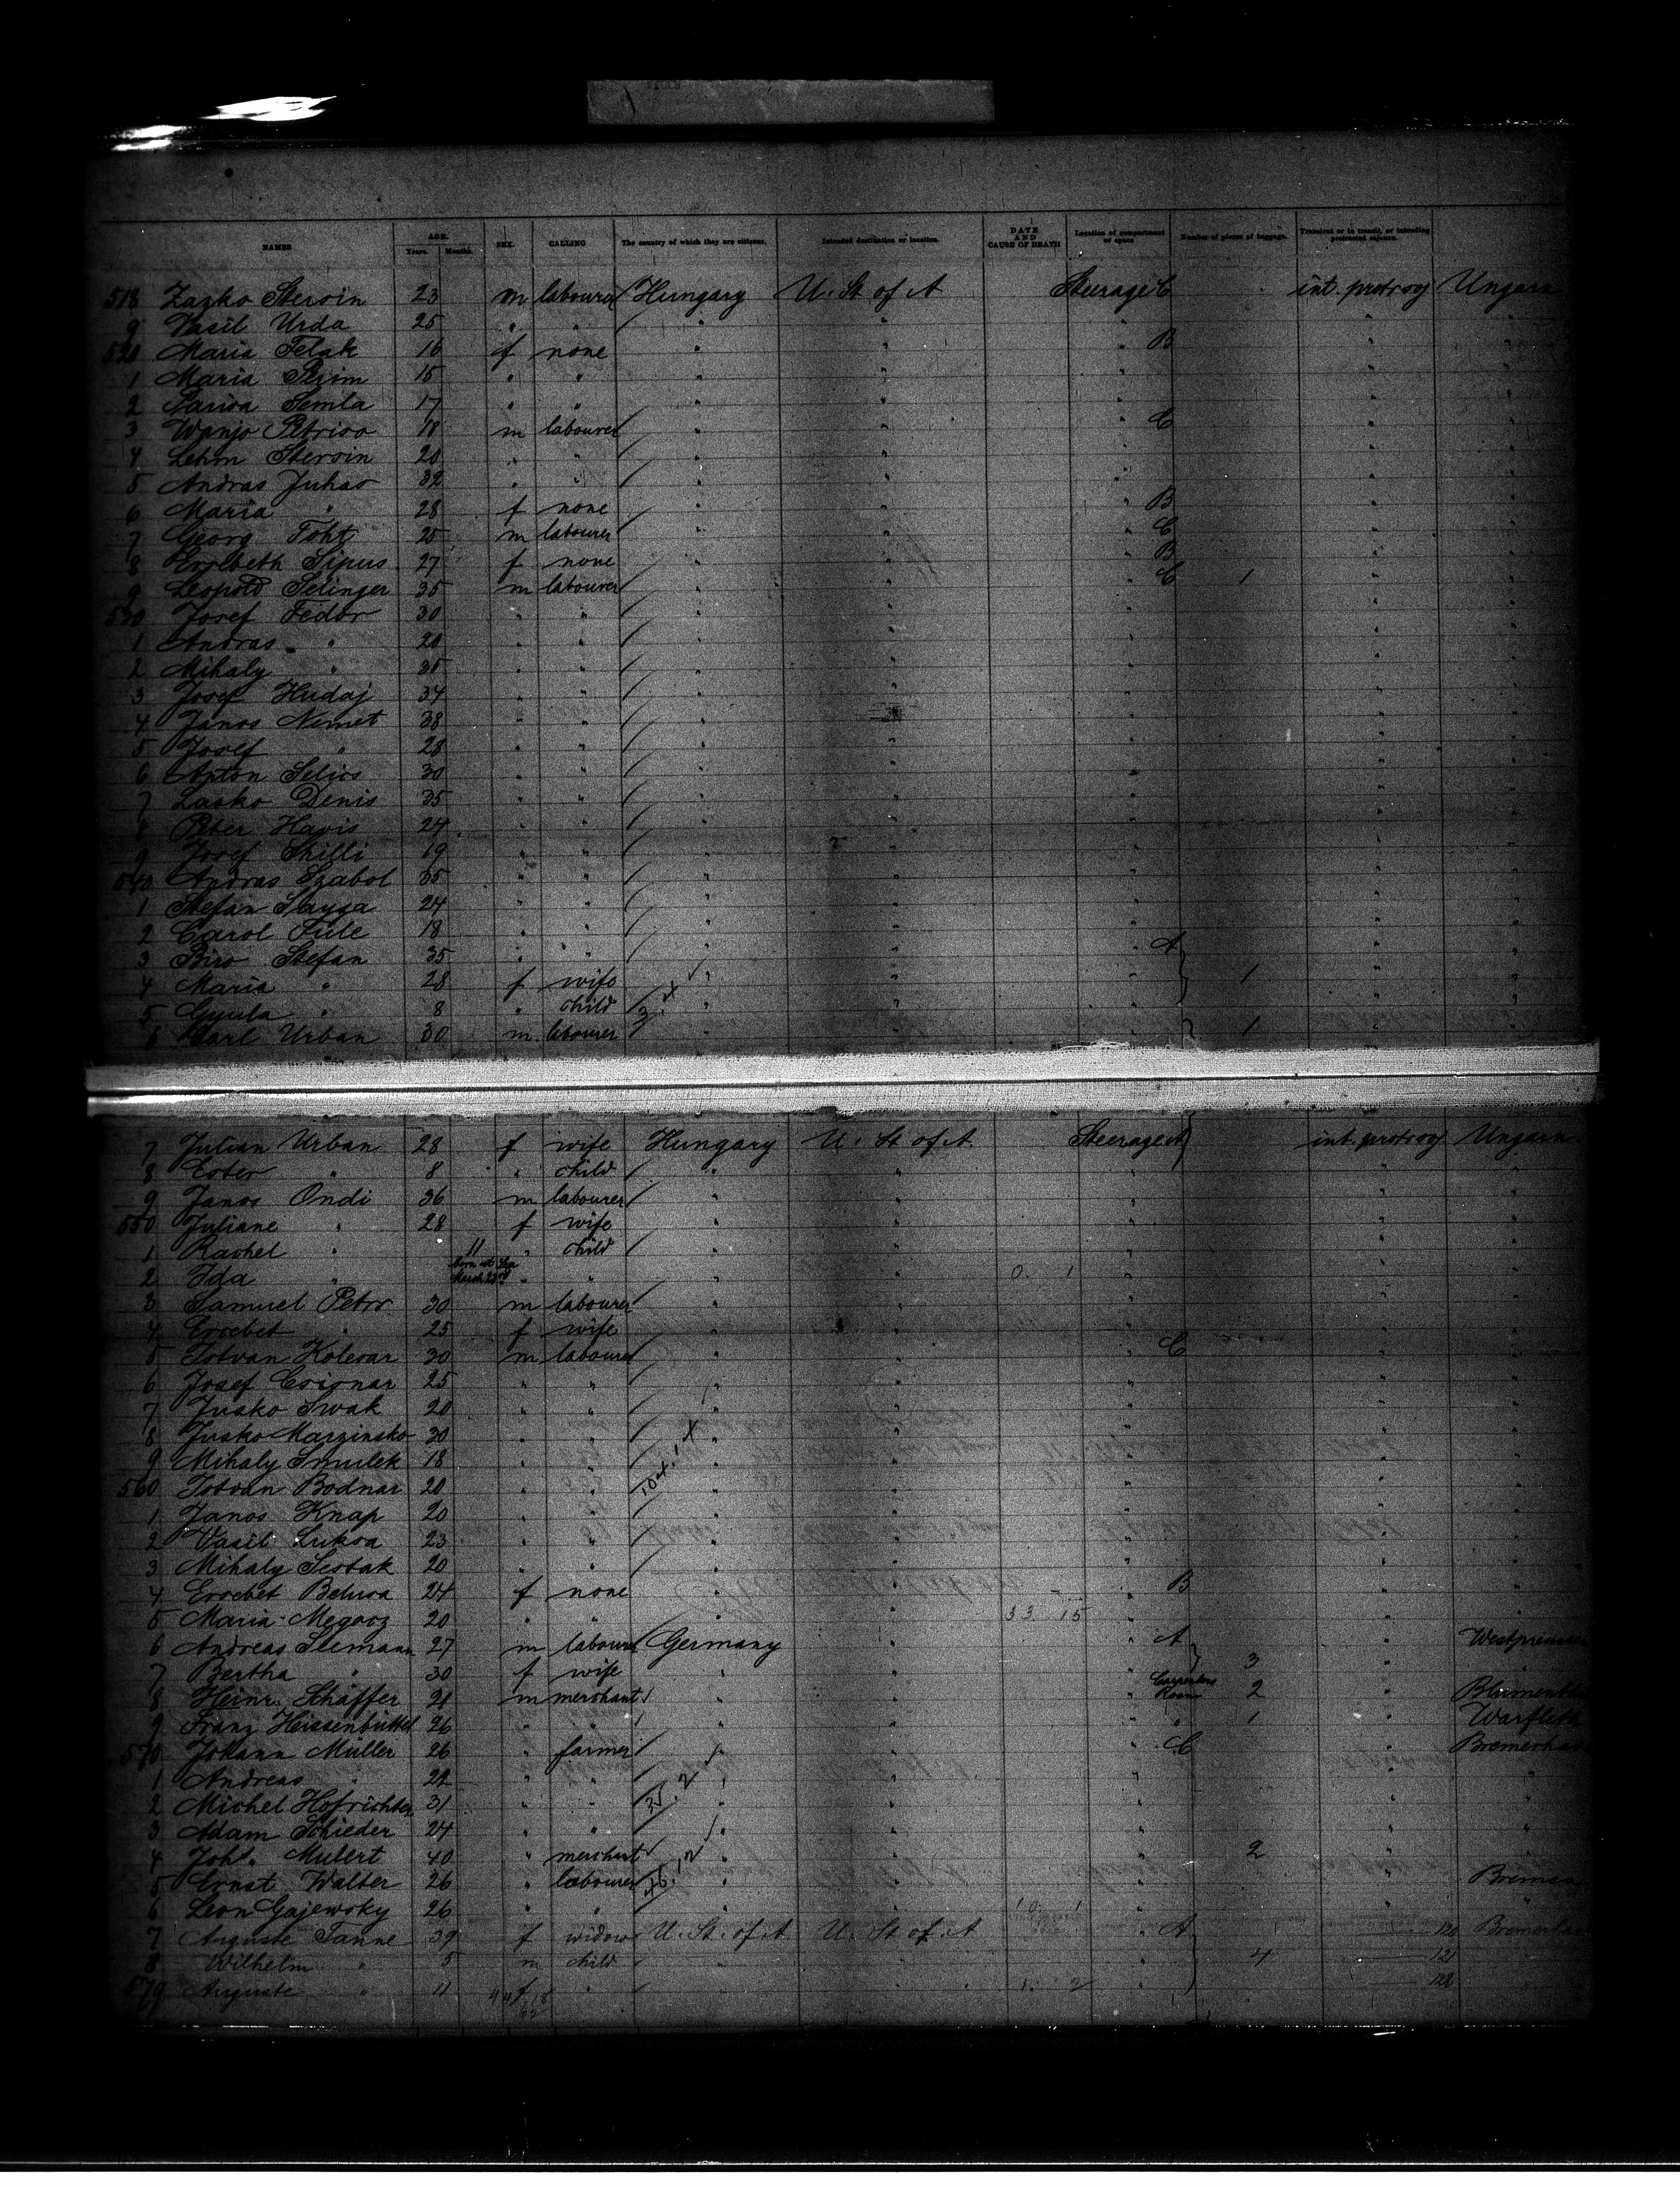 NAMES AGE. Years. Months. SEX. CALLING The country of which they are citizens. Intended destination or location. DATE AND CAUSE OF DEATH Location of compartment or space Number of pieces of baggage. Transient or in transit, or intending protracted sojourn.
518 Zazko Stersin 23 m labourer Hungary U. St of A Steerage C int. protrog Ungarn
9 Vasil Urda 25 " " " " " " "
520 Maria Telak 16 f none " " " B " "
1 Maria 15 " " " " " " "
2 Semla 17 " " " " " " "
3 Wanjo 18 m labourer " " " C " "
4 Stersin 20 " " " " " " "
5 Andras Juhas 32 " " " " " " "
6 Maria " 28 f none " " " B " "
7 Georg Toht 25 m labourer " " " C " "
8 Sipus 27 f none " " " B " "
9 Leopold Selinger 35 m labourer " " " C 1 " "
530 Josef Fedor 30 " " " " " " "
1 Andras " 20 " " " " " " "
2 Mihaly " 35 " " " " " " "
3 Josef Hudaj 34 " " " " " " "
4 Janos Nemet 38 " " " " " " "
5 Josef " 28 " " " " " " "
6 Anton Selics 30 " " " " " " "
7 Lasko Denis 35 " " " " " " "
8 Peter Havis 24 " " " " " " "
9 Josef Skilli 19 " " " " " " "
540 Andras Szabol 35 " " " " " " "
1 Stefan 24 " " " " " " "
2 Carol Füle 18 " " " " " " "
3 Biro Stefan 35 " " " " " A " "
4 Maria " 28 f wife " " " 1 " "
5 Gyula " 8 " child " " " " "
6 Carl Urban 30 m labourer " " " 1 " "
7 Julian Urban 28 f wife Hungary U. St of A. Steerage A int. protrog Ungarn
8 " 8 " child " " " " "
9 Janos Ondi 36 m labourer " " " " "
550 Juliane " 28 f wife " " " " "
1 Rachel " 11 " child " " " " "
2 Ida " born at Sea March 23rd " " " " 0. 1 " " "
3 Samuel Petro 30 m labourer " " " " "
4 Erzebet " 25 f wife " " " " "
5 Istvan Kolesar 30 m labourer " " " C " "
6 Josef 25 " " " " " " "
7 Jusko Swak 20 " " " " " " "
8 Jusko Marzinsko 30 " " " " " " "
9 Mihaly Smulek 18 " " " " " " "
560 Istvan Bodnar 20 " " " " " " "
1 Janos Knap 20 " " " " " " "
2 Vasil Luksa 23 " " " " " " "
3 Mihaly Sestak 20 " " " " " " "
4 Erzebet 24 f none " " " B " "
5 Maria 20 " " " " 33 15 " " "
6 Andreas 27 m labourer Germany " " A " Westpreussen
7 Bertha " 30 f wife " " " 3 " "
8 Heinr. Schäffer 21 m merchant " " " Carpenters Room 2 " Blumenthal
9 Franz Heissenbüttel 26 " " " " " " 1 " Warfleth
570 Johann Müller 26 " farmer " " " C " Bremerhaven
1 Andreas " 22 " " " " " " "
2 Michel Hofrichter 31 " " " " " " "
3 Adam Schieder 24 " " " " " " "
4 Joh. Mulert 40 " merchant " " " 2 " "
5 Ernst Walter 26 " labourer " " " " Bremen
6 Leon Gajewsky 26 " " " " 10 1 " " "
7 Auguste Tanne 39 f widow U. St. of A U. St of A " A 120 Bremerhaven
8 Wilhelm " 5 m child " " " 4 121 "
579 Auguste " 11 f " " " 1. 2 " 122 "